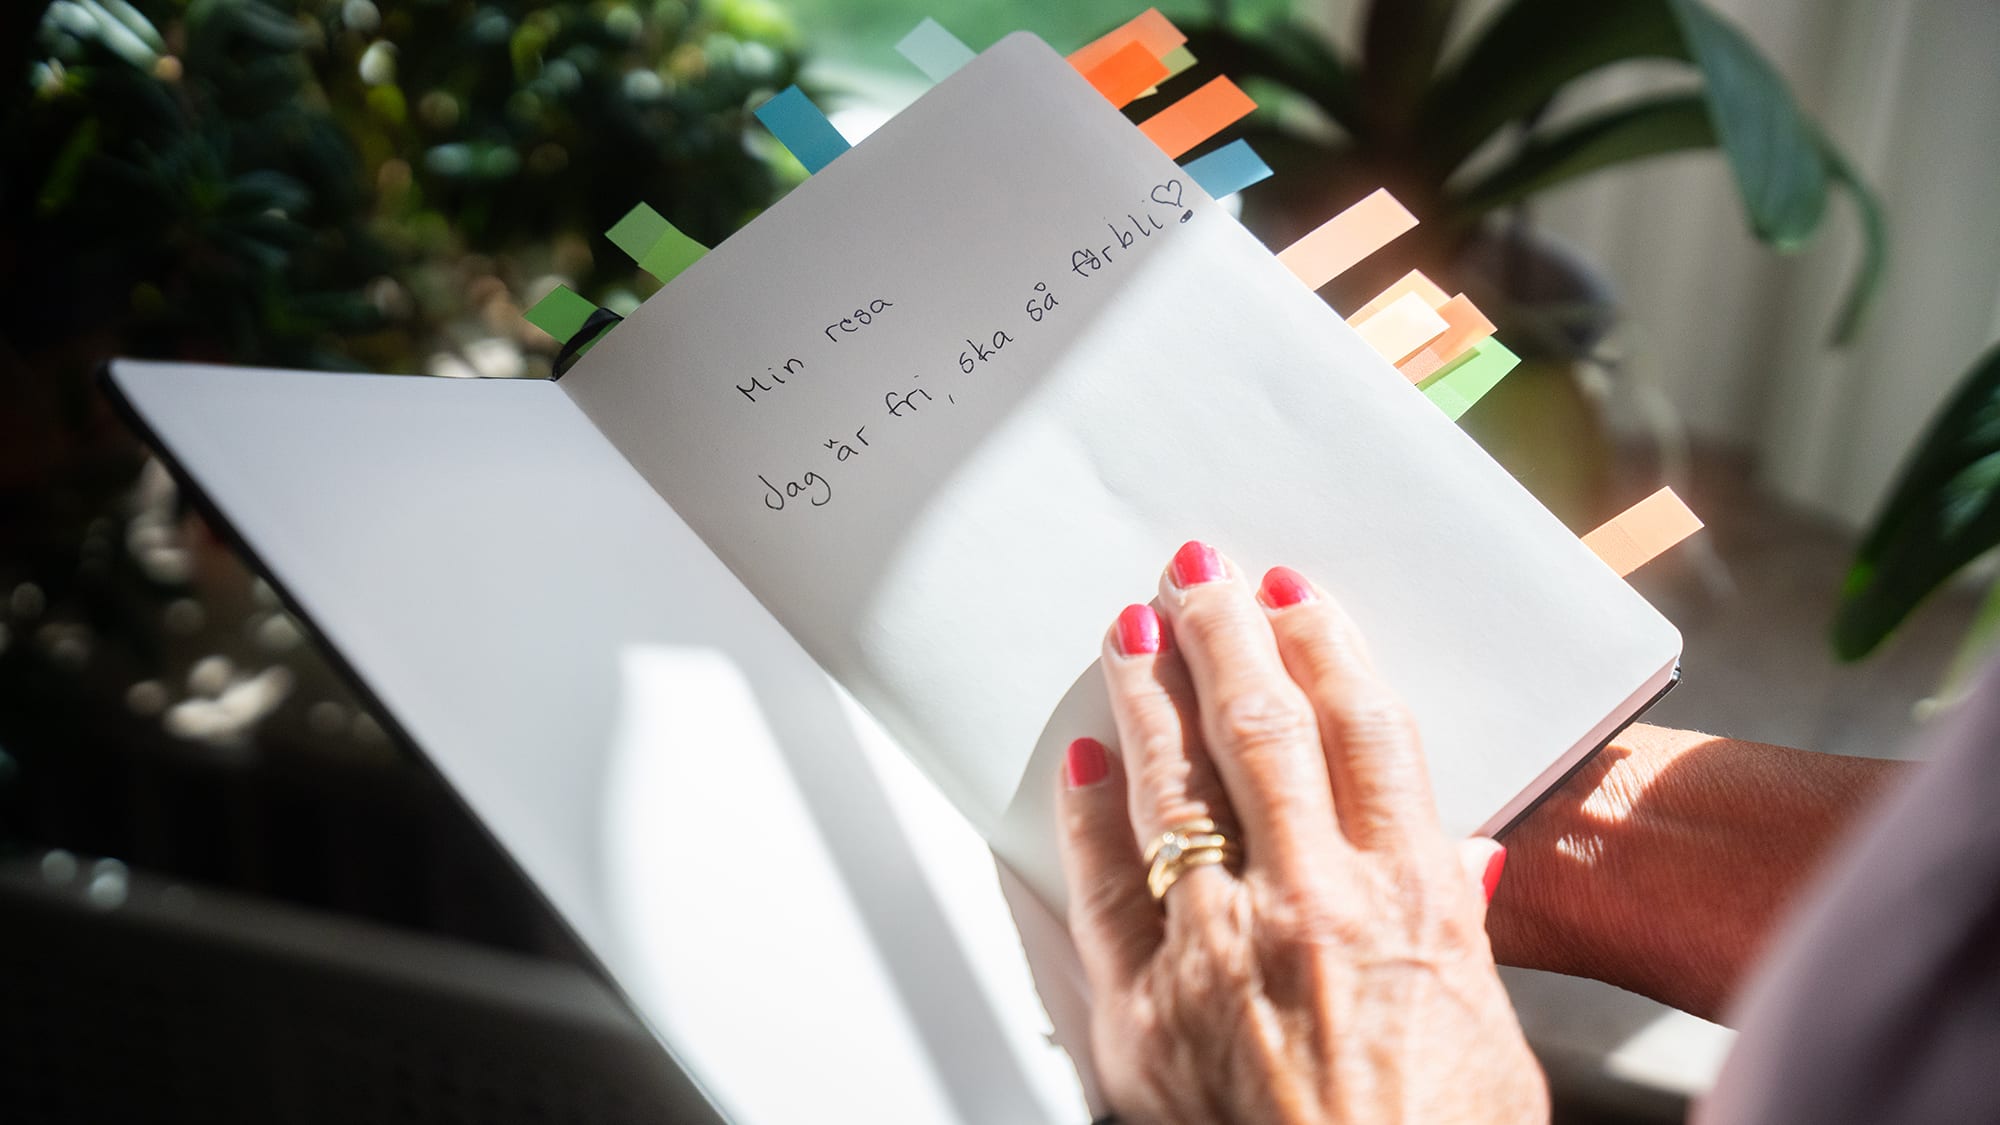 Min resa
Jag är fri, ska så förbli!